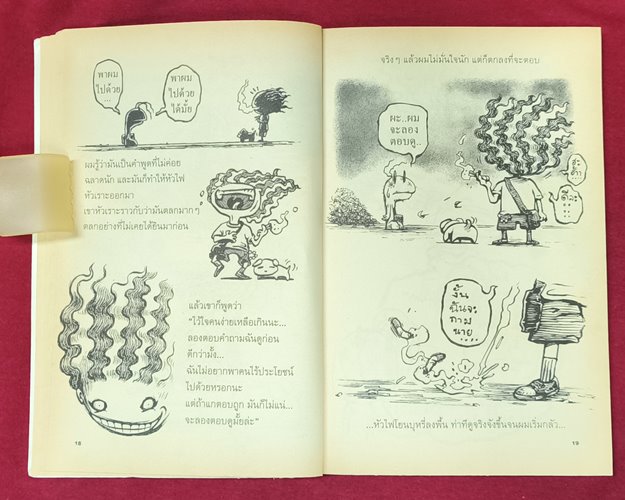 พาผม
ไปด้วย
...
พาผม
ไปด้วย
ได้มั้ย
ผมรู้ว่ามันเป็นคำพูดที่ไม่ค่อย
ฉลาดนัก และมันก็ทำให้หัวไฟ
หัวเราะออกมา
เขาหัวเราะราวกับว่ามันตลกมากๆ
ตลกอย่างที่ไม่เคยได้ยินมาก่อน
แล้วเขาก็พูดว่า
"ไว้ใจคนง่ายเหลือเกินนะ...
ลองตอบคำถามฉันดูก่อน
ดีกว่ามั้ง...
ฉันไม่อยากพาคนไร้ประโยชน์
ไปด้วยหรอกนะ
แต่ถ้าแกตอบถูก มันก็ไม่แน่...
จะลองตอบดูมั้ยล่ะ"
18
จริงๆ แล้วผมไม่มั่นใจนัก แต่ก็ตกลงที่จะตอบ
ผะ..ผม
จะลอง
ตอบดู..
งั้น
ฉันจะ
ถาม
นาย
....
...หัวไฟโยนบุหรี่ลงพื้น ท่าทีดูจริงจังขึ้นจนผมเริ่มกลัว...
19